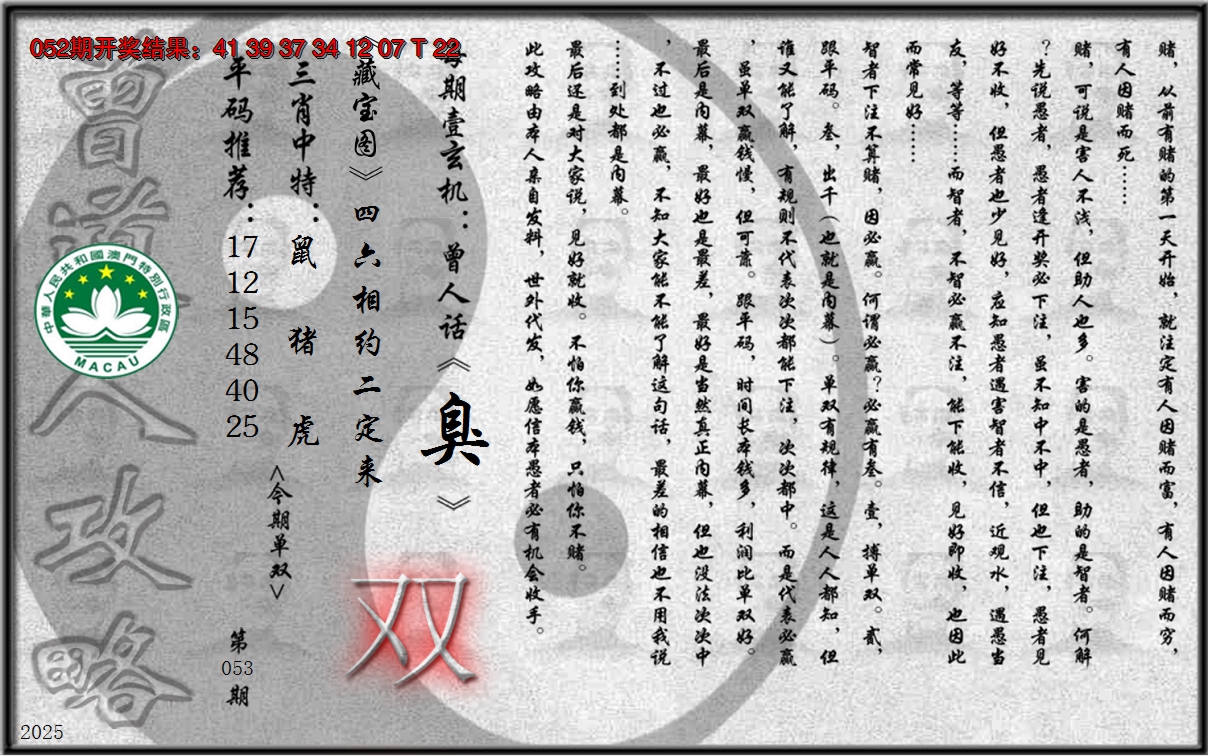 052期开奖结果：41 39 37 34 12 07 T 22
赌，从前有赌的第一天开始，就注定有人因赌而富，有人因赌而穷，
有人因赌而死……
赌，可说是害人不浅，但助人也多。害的是愚者，助的是智者。何解
？先说愚者，愚者逢开奖必下注，虽不知中不中，但也下注，愚者见
好不收，但愚者也少见好，应知愚者遇害智者不信，近观水，遇愚当
友，等等……而智者，不智必赢不注，能下能收，见好即收，也因此
而常见好……
智者下注不算赌，因必赢。何谓必赢？必赢有叁。壹，搏单双。贰，
跟平码。叁，出千（也就是内幕）。单双有规律，这是人人都知，但
谁又能了解，有规则不代表次次都能下注，次次都中。而是代表必赢
，虽单双赢钱慢，但可靠。跟平码，时间长本钱多，利润比单双好。
最后是内幕，最好也是最差，最好是当然真正内幕，但也没法次次中
，不过也必赢，不知大家能不能了解这句话，最差的相信也不用我说
……到处都是内幕。
最后还是对大家说，见好就收。不怕你赢钱，只怕你不赌。
此攻略由本人亲自发料，世外代发，如愿信本愚者必有机会收手。
每期壹玄机：曾人话《臭》
《藏宝图》四六相约二定来
双
三肖中特：鼠 猪 虎
<今期单双>
平码推荐：17 12 15 48 40 25
第053期
曾道人攻略
中華人民共和國澳門特別行政區
MACAU
2025